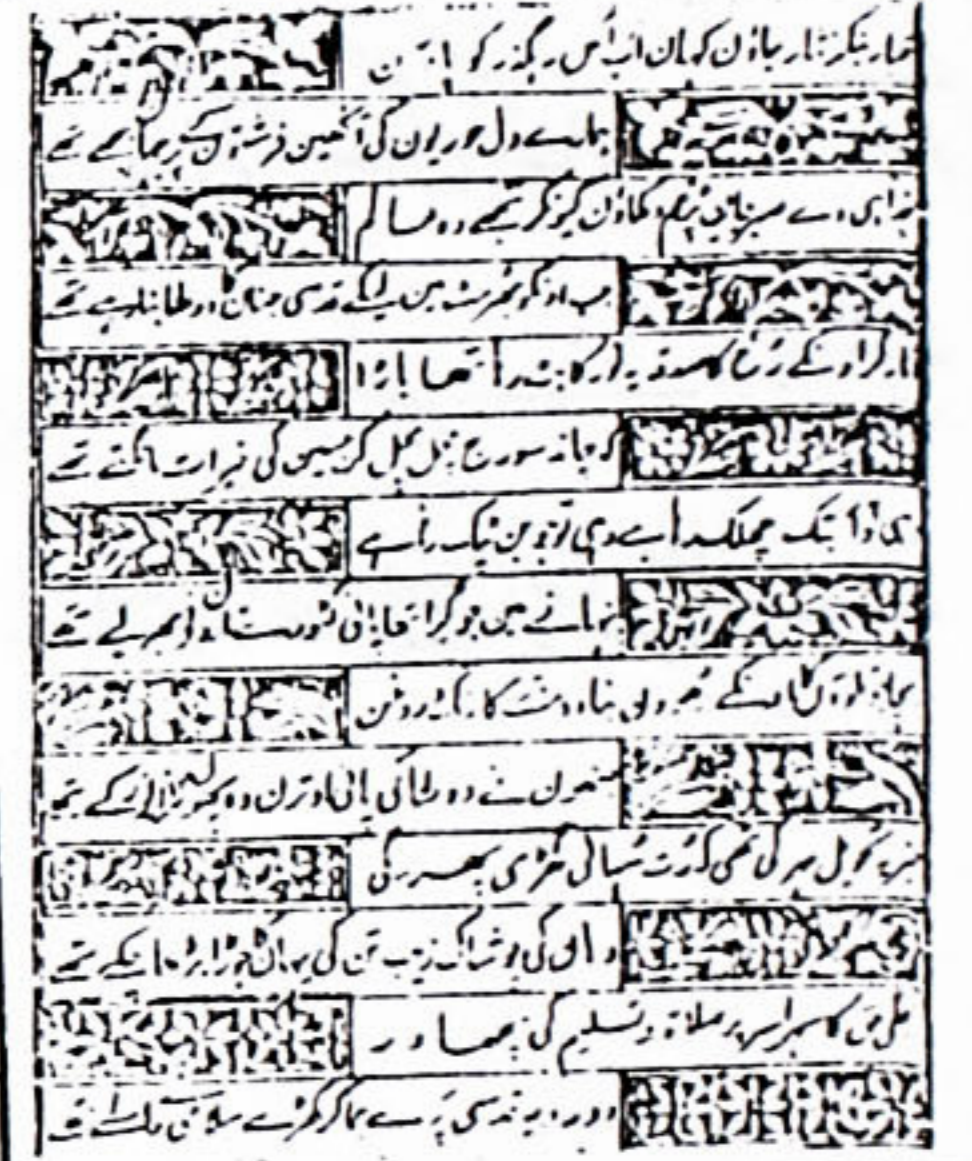 غبار بنکر نثار جاؤن کہان اب اُس رہگذر کو پائین
ہمارے دل حوریون کی آنکھین فرشتون کے پر جہان بچھے تھے
خدا ہی دے صبر جان پُرغم دکھاؤن کیونکر تجھے وہ عالم
جب اونکو جھرمٹ مین لیکے قدسی جنان کا دولھا بنا رہے تھے
اتار کر اونکے رخ کا صدقہ یہ نور کا بٹ رہا تھا باڑا
کہ چاند سورج مچل مچل کر جبین کی خیرات مانگتے تھے
وہی تو اب تک چھلک رہا ہے وہی تو جوبن ٹپک رہا ہے
نہانے مین جو گرا تھا پانی کٹورے تارون نے بھر لیے تھے
بچا جو تلوون کا اونکے دھوون بنا وہ جنت کا رنگ و روغن
جنھون نے دولھا کی پائی اوترن وہ پھول گلزار نور کے تھے
خبر یہ تحویل مہر کی تھی کہ رت سہانی گھڑی پھرے گی
وہان کی پوشاک زیب تن کی یہان کا جوڑا بڑھا چکے تھے
تجلی حق کا سہرا سر پر صلاۃ و تسلیم کی نچھاور
دو رویہ قدسی پرے جما کر کھڑے سلامی کے واسطے تھے